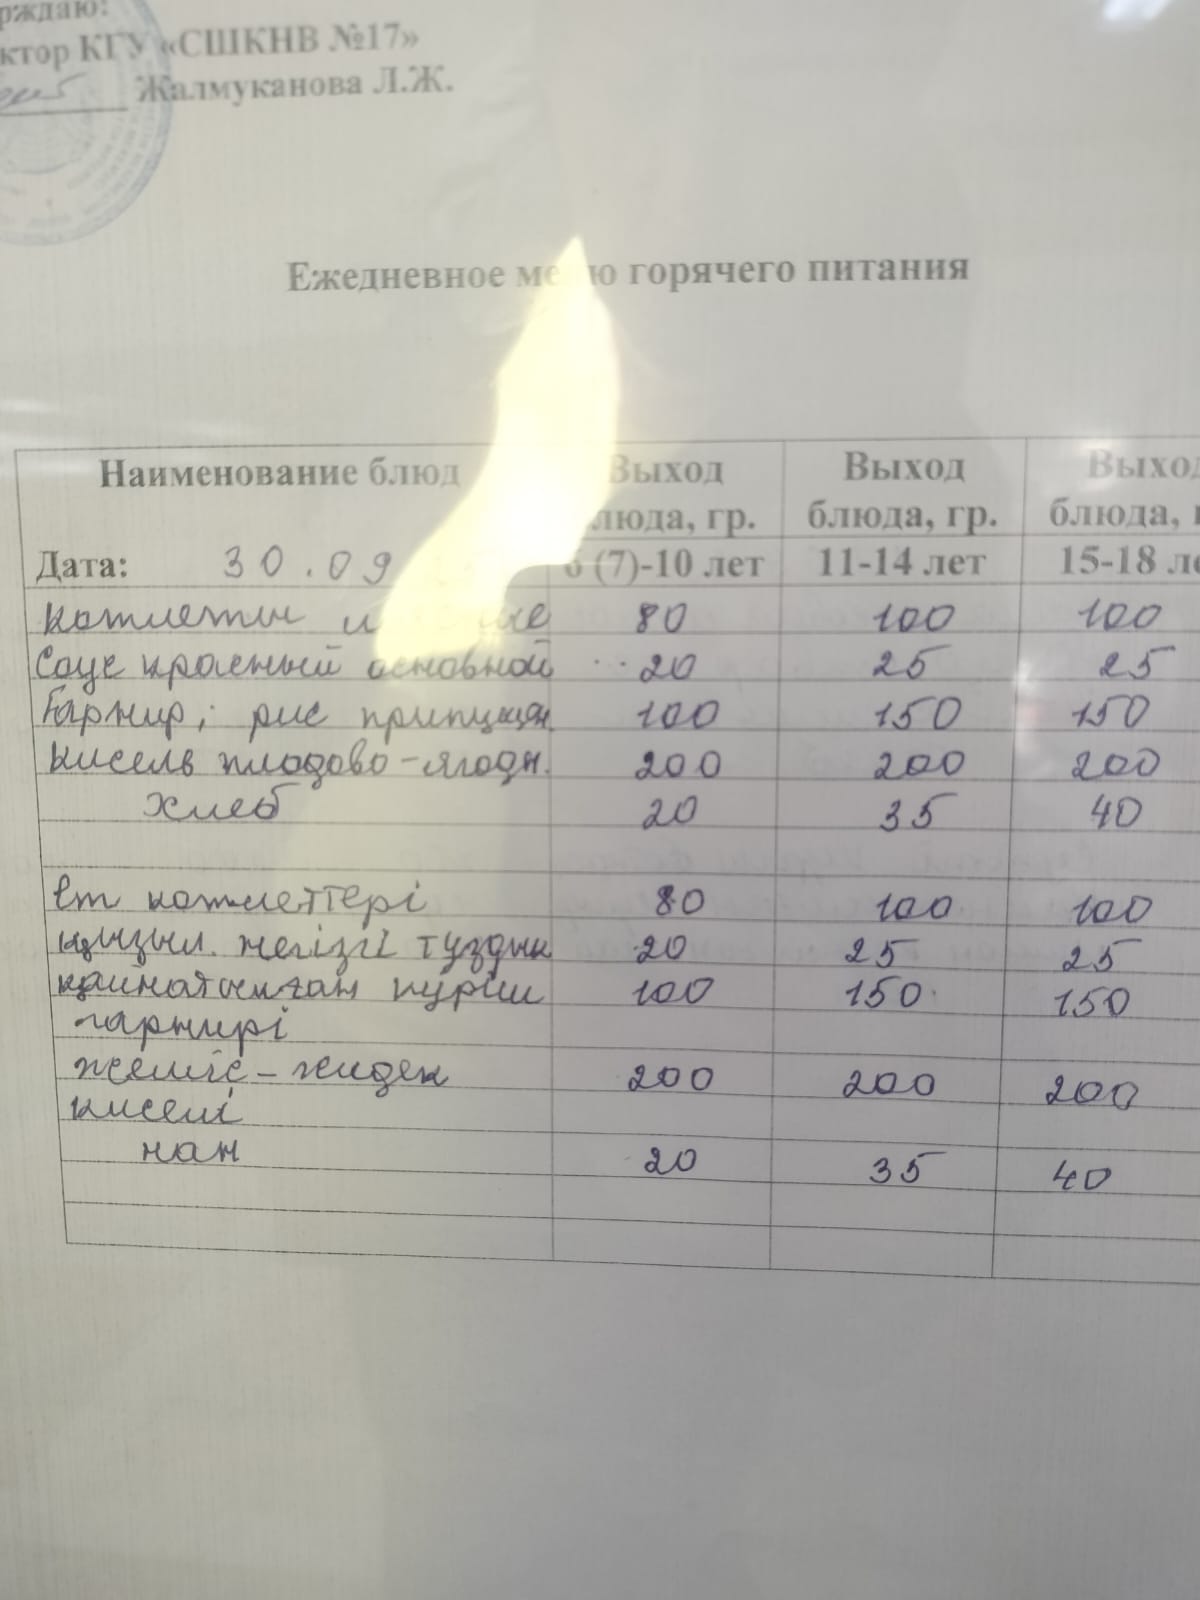 рждаю:
ктор КГУ «СШКНВ №17»
Жалмуканова Л.Ж.
Ежедневное горячего питания
Наименование блюд Выход блюда, гр. Выход блюда, гр. Выход блюда,
Дата: 30.09 6 (7)-10 лет 11-14 лет 15-18 ле
котлеты 80 100 100
Соус красный основной 20 25 25
Гарнир; рис припущен. 100 150 150
кисель плодово-ягодн. 200 200 200
Хлеб 20 35 40
Ет котлеттері 80 100 100
қызыл негізгі тұздық 20 25 25
қайнатылған күріш 100 150 150
гарнирі
жеміс-жидек 200 200 200
киселі
нан 20 35 40